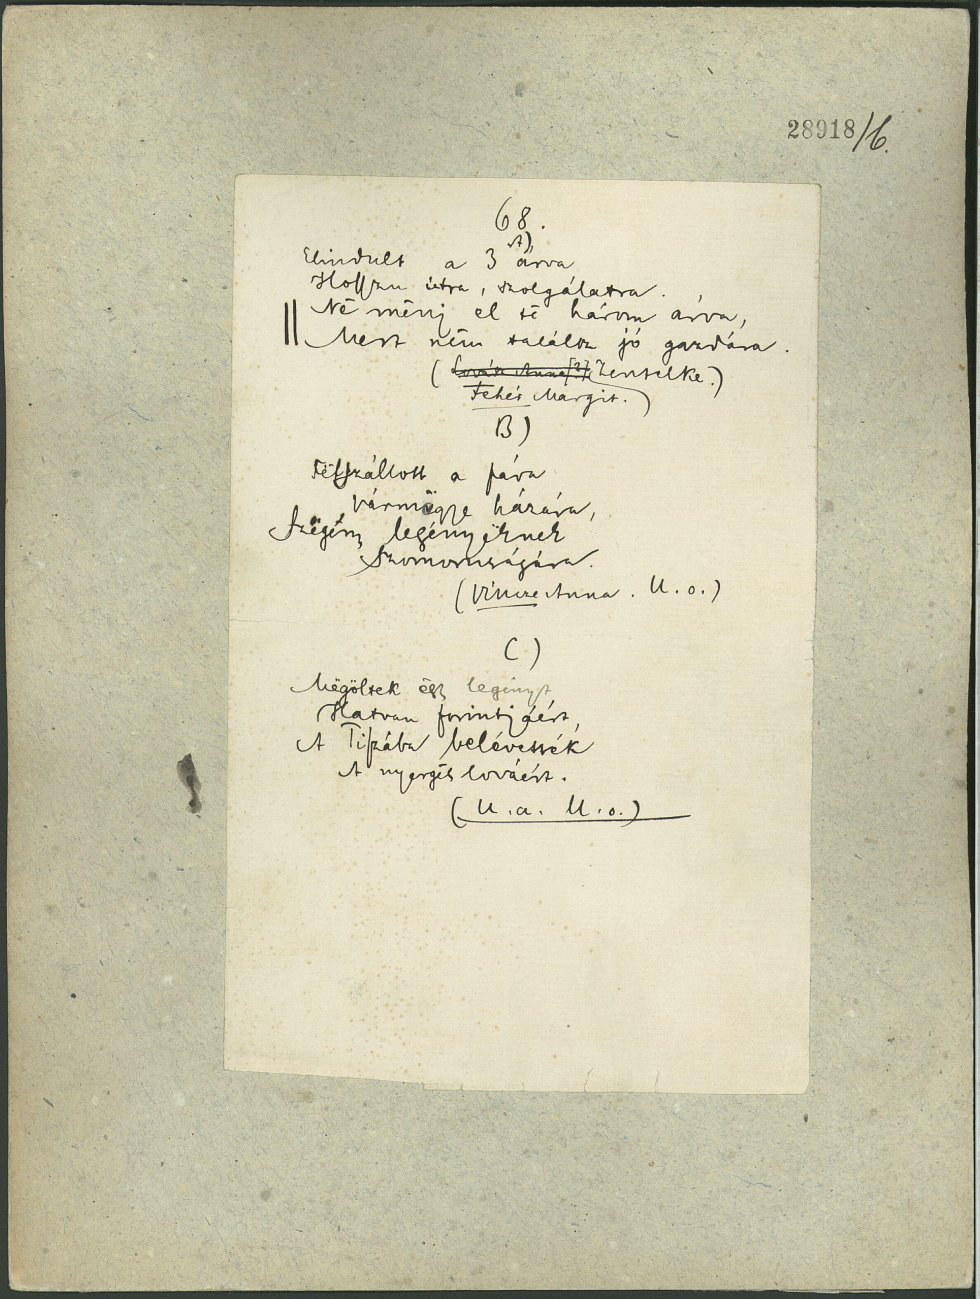 28918/6.
68.
A)
Elindult a 3 árva
Hosszu útra, szolgálatra.
Në mënj el të három árva,
Mert nëm találtz jó gazdára.
( Zentelke.)
Fehér Margit.)
B)
Fëlszállott a páva
Vármëgye házára,
Szëgény legényëknek
Szomoruságára.
(Vincze Anna. U. o.)
C)
Mëgöltek ëgy legényt
Hatvan forintjáért,
A Tiszába belévették
A nyergës lováért.
(U. a. U. o.)